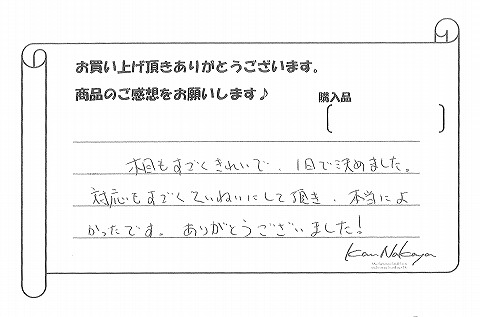 お買い上げ頂きありがとうございます。
商品のご感想をお願いします♪
購入品
木目もすごくきれいで、1日で決めました。
対応もすごくていねいにして頂き、本当によ
かったです。ありがとうございました!
KanNakaya